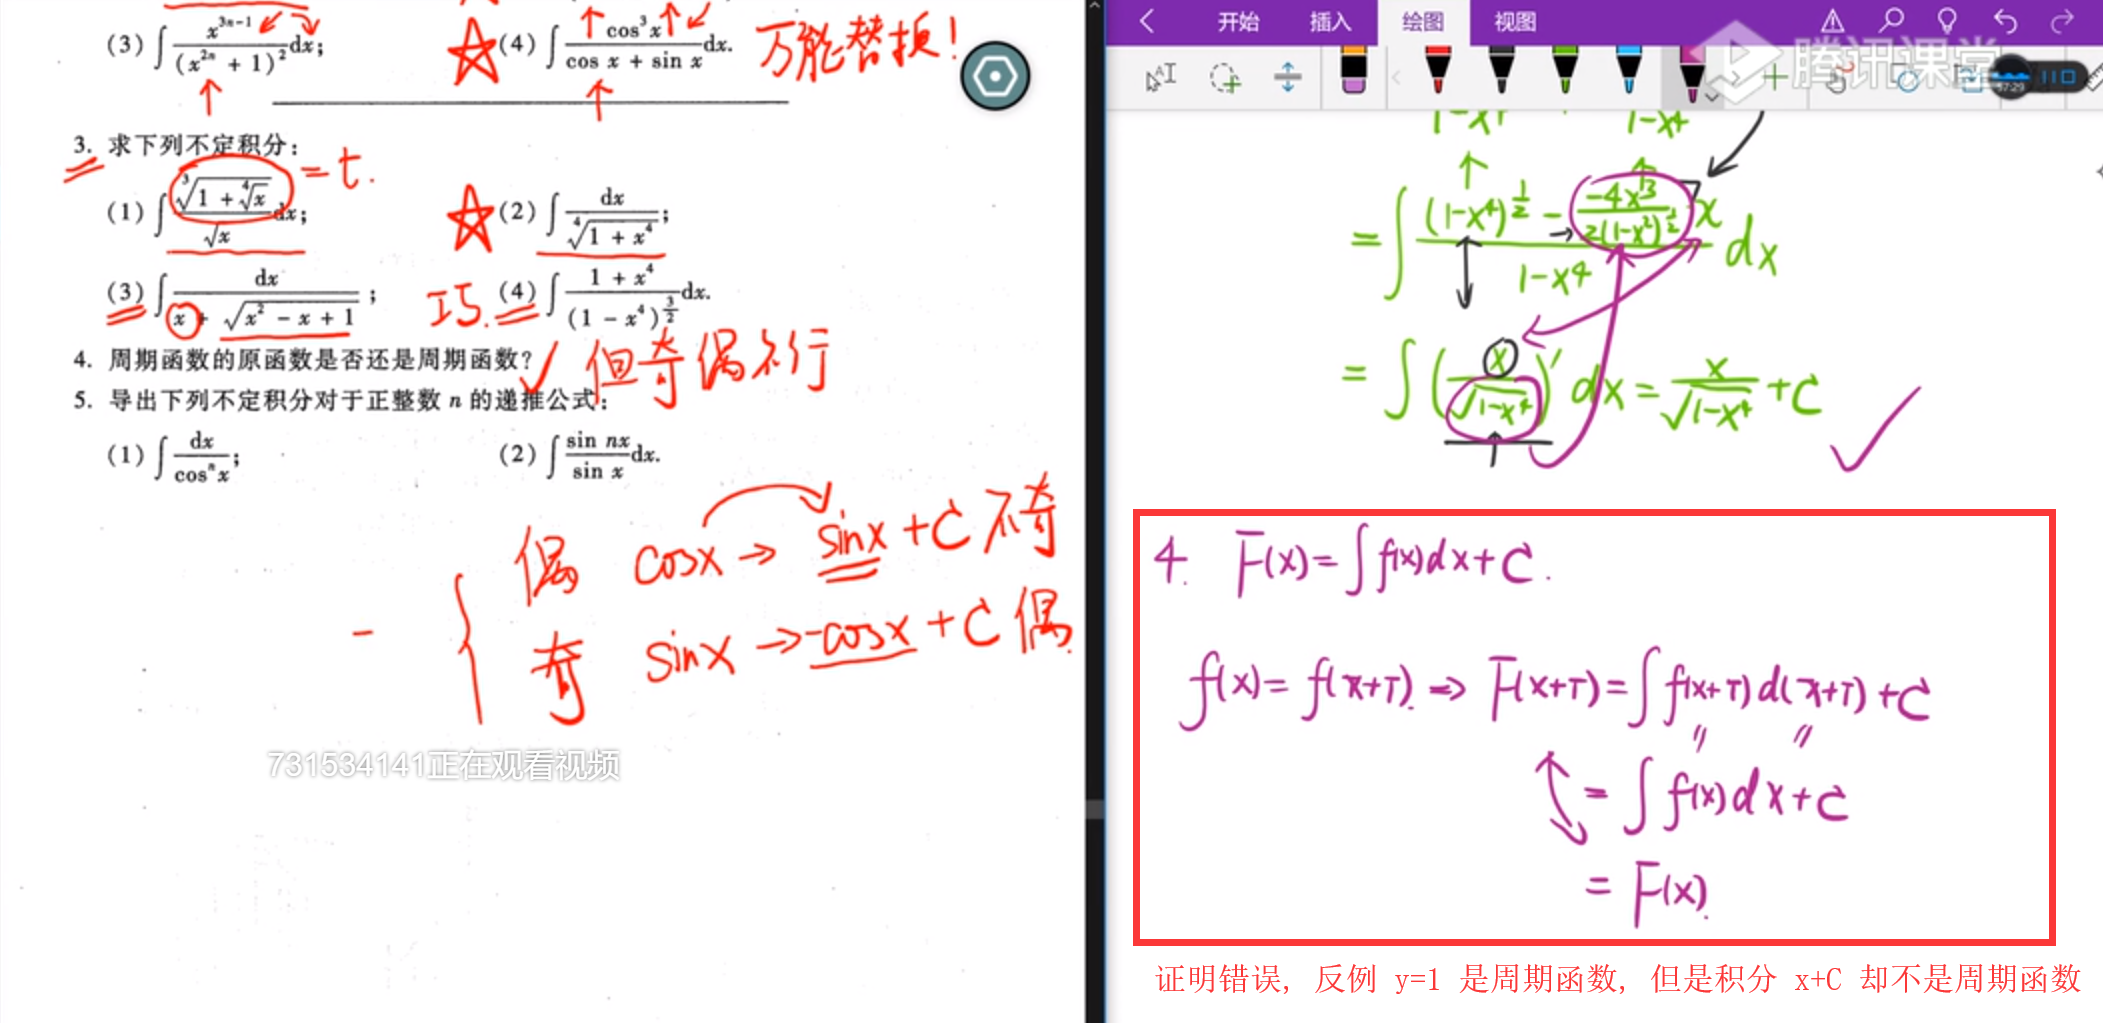 (3) ∫ x^{3n-1}/(x^{2n} + 1)^2 dx;
(4) ∫ cos^3 x/(cos x + sin x) dx.
万能替换!
3. 求下列不定积分:
(1) ∫ ∛(1 + ∜x)/√x dx;
= t.
(2) ∫ dx/∜(1 + x^4);
(3) ∫ dx/(x + √(x^2 - x + 1));
巧.
(4) ∫ (1 + x^4)/(1 - x^4)^{3/2} dx.
4. 周期函数的原函数是否还是周期函数?
✓ 但奇偶不行
5. 导出下列不定积分对于正整数 n 的递推公式:
(1) ∫ dx/cos^n x;
(2) ∫ sin nx/sin x dx.
偶 cosx → sinx + C 不奇
奇 sinx → -cosx + C 偶.
731534141正在观看视频
开始 插入 绘图 视图
腾讯课堂
57:29
1-x^4 1-x^4
= ∫ ((1-x^4)^{1/2} - (-4x^3)/(2(1-x^2)^{1/2}) x)/(1-x^4) dx
= ∫ (x/√(1-x^4))' dx = x/√(1-x^4) + C
4. F(x) = ∫ f(x)dx + C.
f(x) = f(x+T). ⇒ F(x+T) = ∫ f(x+T) d(x+T) + C
= ∫ f(x) dx + C
= F(x).
证明错误, 反例 y=1 是周期函数, 但是积分 x+C 却不是周期函数